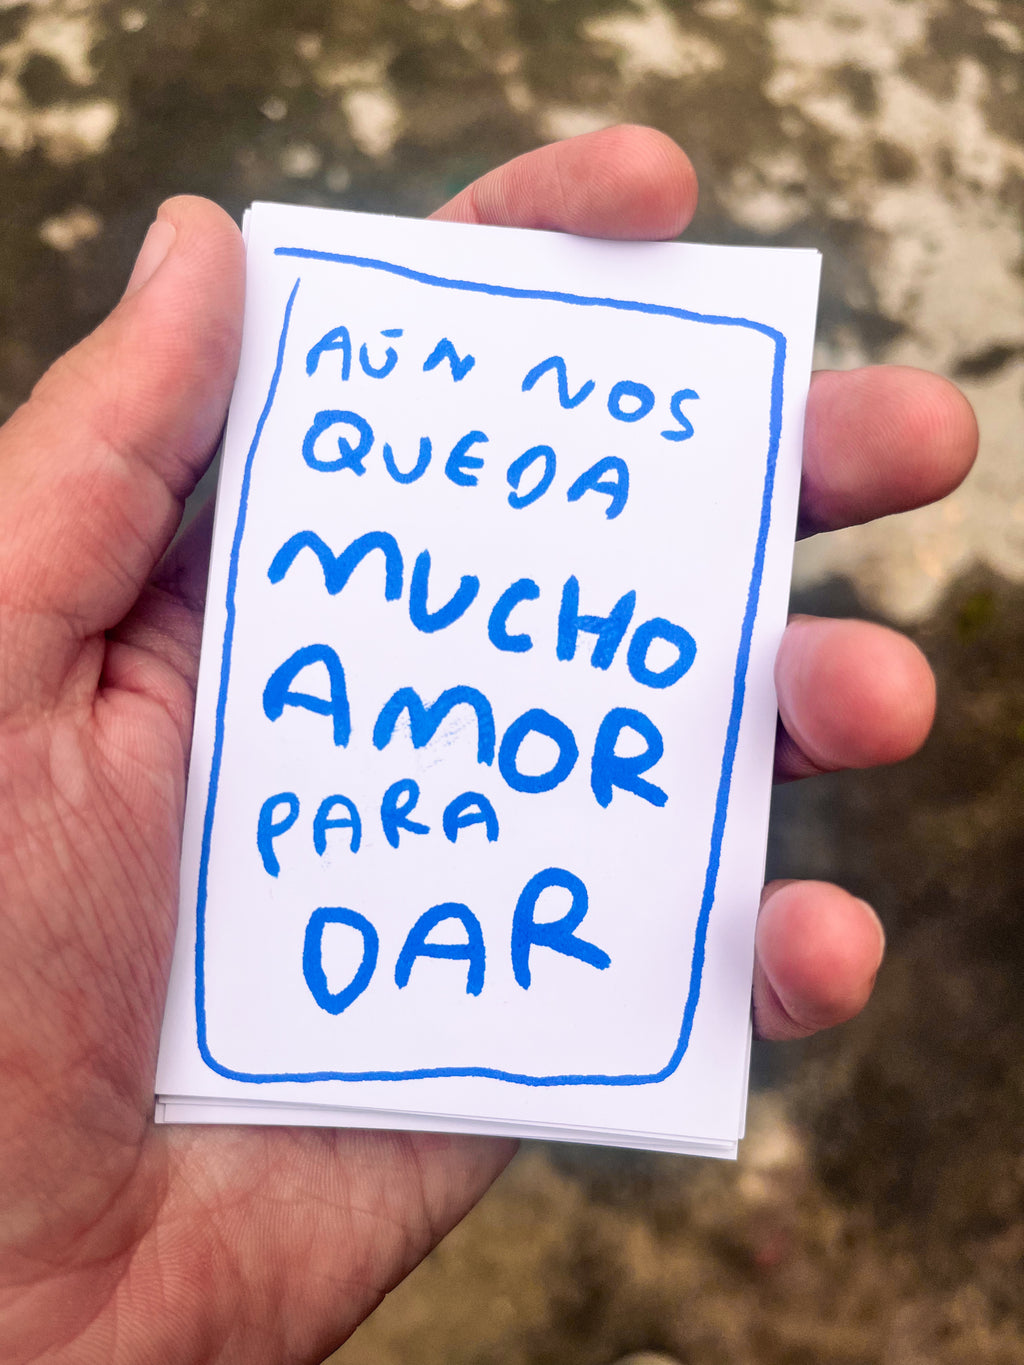 AÚN NOS
QUEDA
MUCHO
AMOR
PARA
DAR